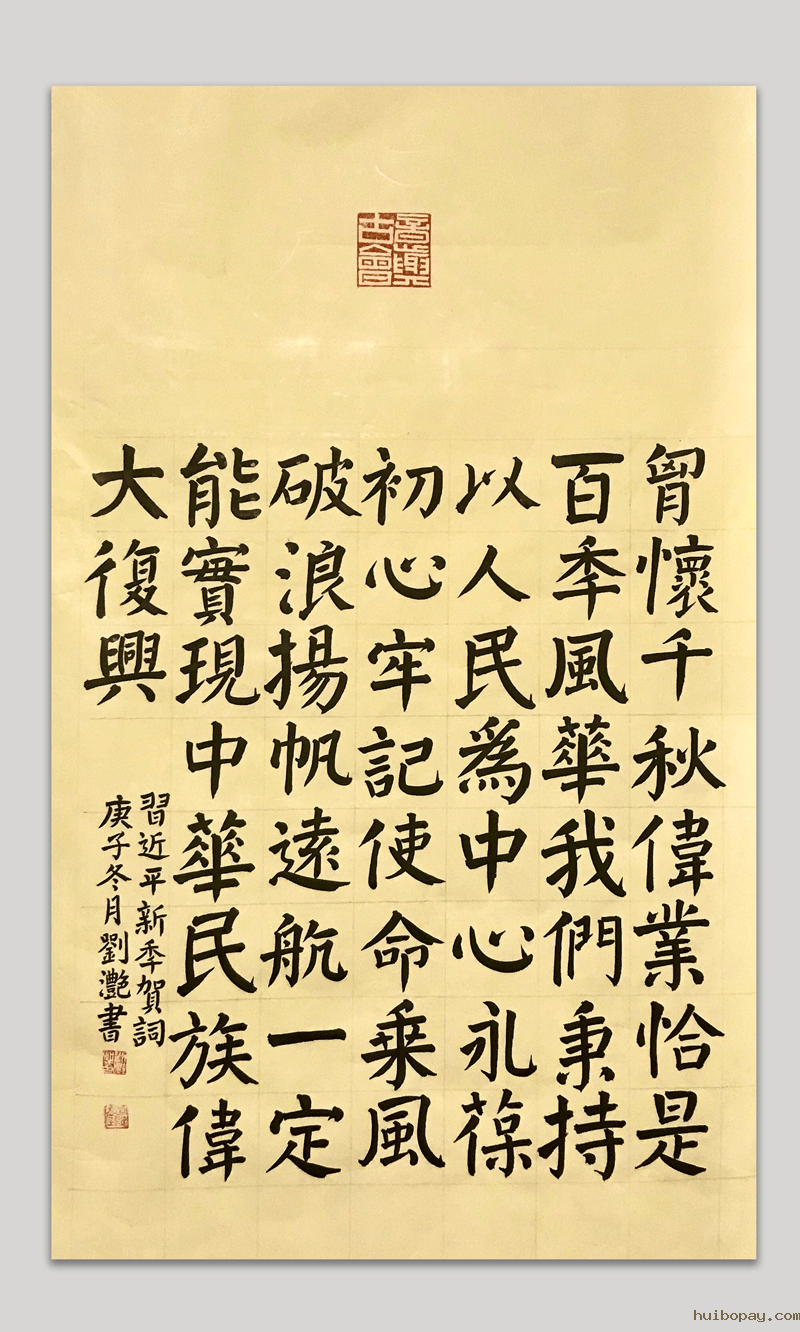 胷懷千秋偉業恰是
百秊風華我們秉持
以人民爲中心永葆
初心牢記使命乗風
破浪揚帆遠航一定
能實現中華民族偉
大復興
習近平新秊賀詞
庚子冬月劉灔書
huibopay.com